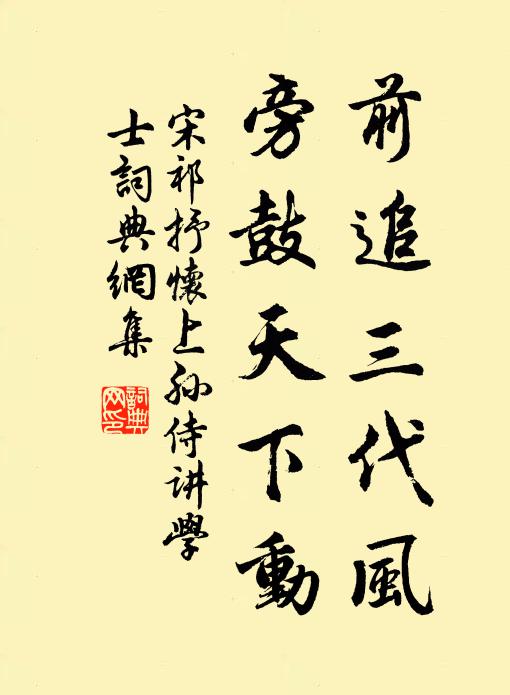 前追三代風
旁鼓天下動
宋祁抒懷上孫侍讲學
士詞典網集
詞典
网印